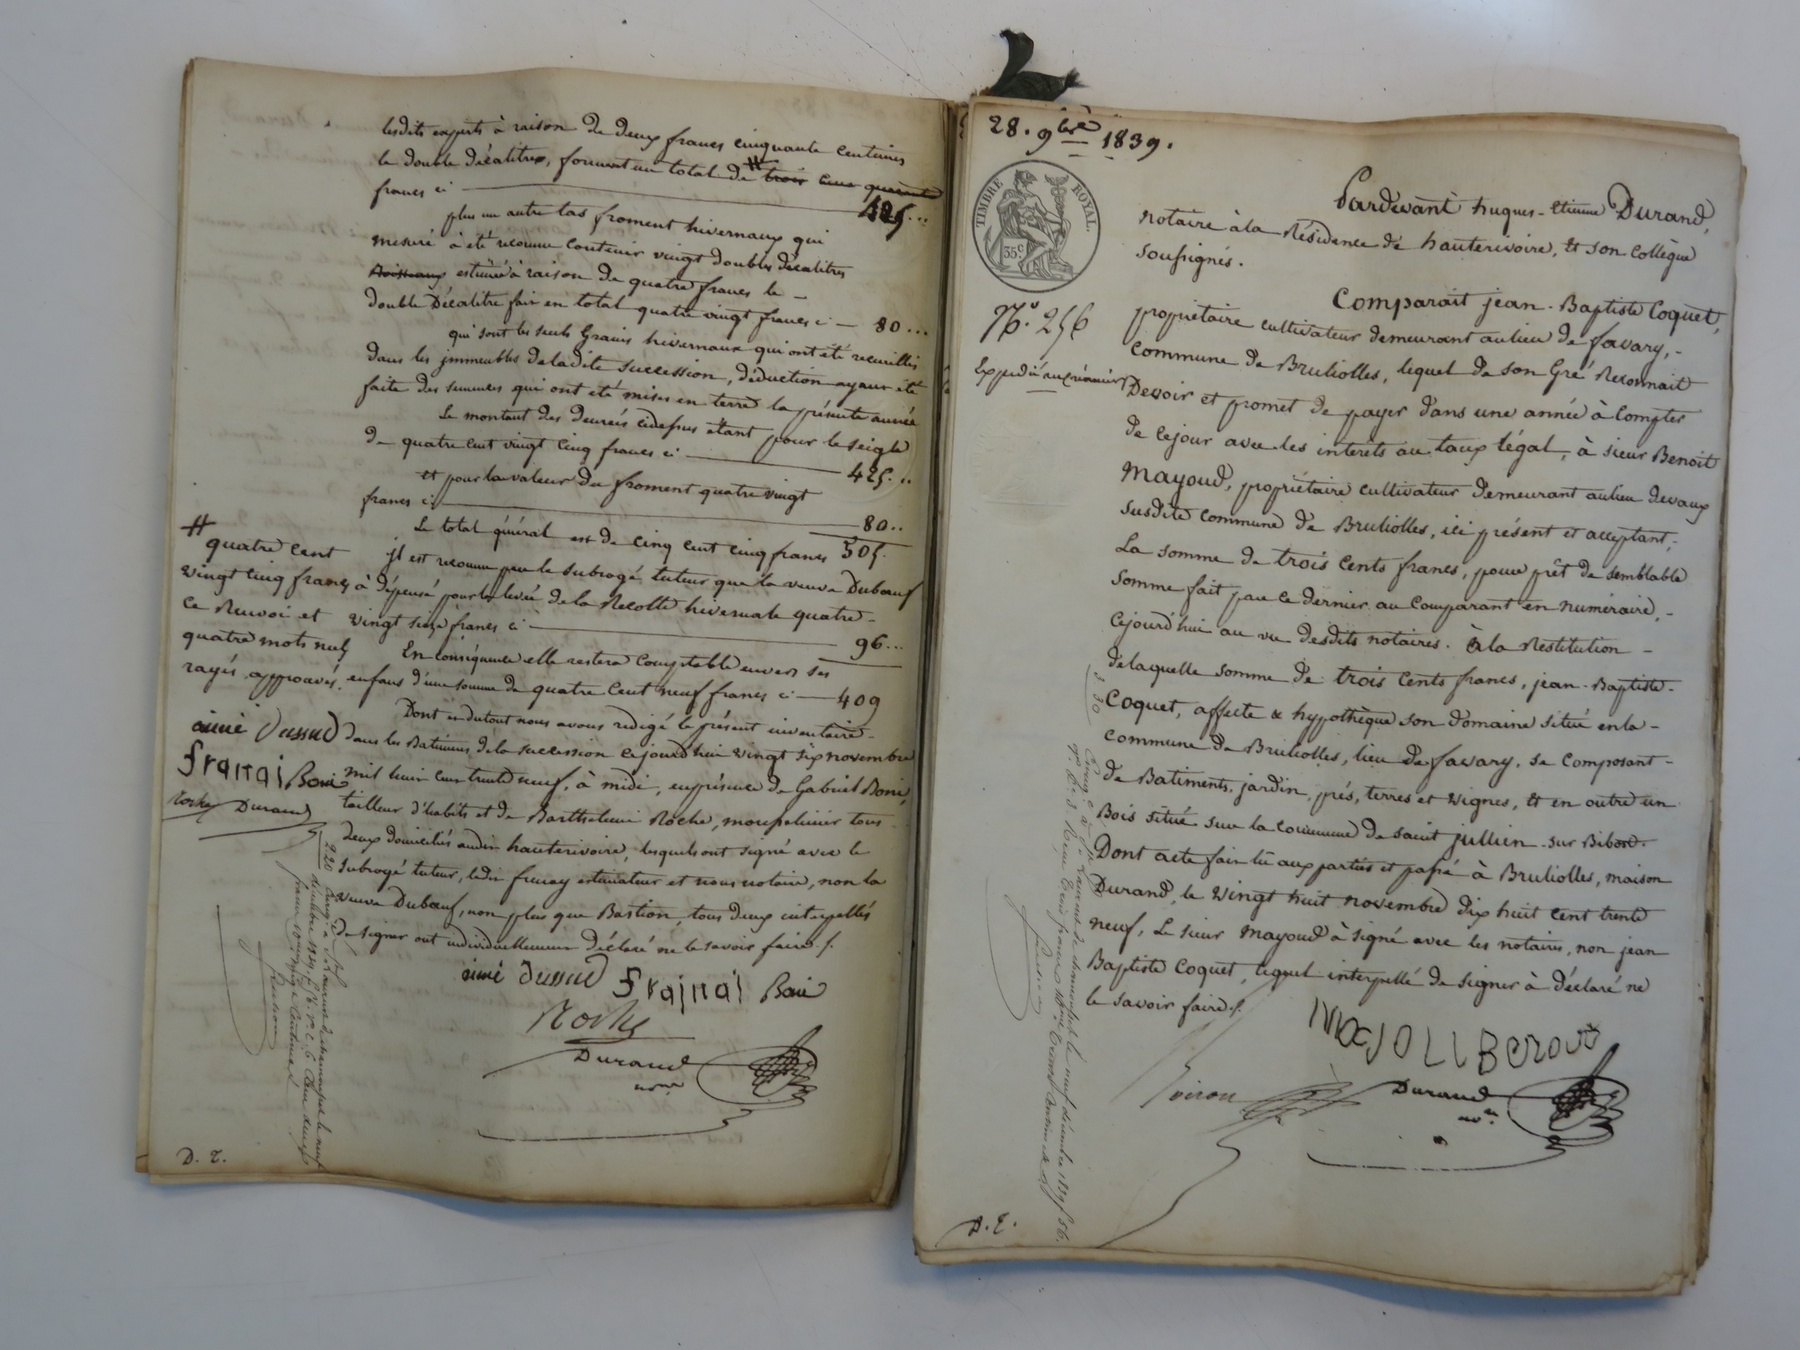 lesdits experts à raison de deux francs cinquante centimes
le double décalitres, formant un total de # trois cent quarante
francs ci 425...
plus un autre tas froment hivernaux qui
mesuré à été reconnu contenir vingt doubles décalitres
estimé à raison de quatre francs le -
double Décalitre fait en total quatre vingt francs ci - 80...
qui sont les seuls Grains hivernaux qui ont été recueillis
dans les jmmeubles de ladite succession, déduction ayant été
faite des semences qui ont été mises en terre la présente année
Le montant des denrées cidessus étant pour le seigle
de quatre cent vingt cinq francs ci 425...
et pour la valeur du froment quatre vingt
francs ci 80..
Le total général est de cinq cent cinq francs 505.
jl est reconnu par le subrogé tuteur que la veuve Dubœuf
à dépensé pour la levée de la Recolte hivernale quatre-
vingt seize francs ci 96...
En conséquence elle restera comptable envers ses
enfans d'une somme de quatre cent neuf francs ci - 409
Dont du tout nous avons redigé le présent inventaire
dans les Batimens de la succession cejourd'hui vingt six novembre
mil huit cent trente neuf, à midi, en présence de Gabriel Boni,
tailleur d'habits et de Barthelemi Roche, tous
deux domiciliés audit hauterivoire, lesquels ont signé avec le
subrogé tuteur, ledit frenay estimateur et nous notaire, non la
veuve Dubœuf, non plus que Bastion, tous deux interpellés
de signer ont individuellement déclaré ne le savoir faire ./.
aimé Dussud frainai Boni
Roche
Durand
nore
#
quatre cent
vingt cinq francs
ce Renvoi et
quatre mots nuls
rayés approuvés.
aimé Dussud
frainai Boni
Roche Durand
D. E.
28. 9bre 1839.
TIMBRE ROYAL.
35c
No. 256
Expédié au créancier
Pardevant hugues-Etienne Durand,
notaire à la Résidence de hauterivoire, et son Collègue
soussignés.
Comparait jean-Baptiste Coquet,
propriétaire cultivateur demeurant au lieu de favary, -
Commune de Brulliolles, lequel de son Gré Reconnait
Devoir et promet de payer dans une année à Compter
de cejour avec les interets au taux légal, à sieur Benoit
Mayoud, propriétaire cultivateur demeurant au lieu devaux
susdite commune de Brulliolles, ici présent et acceptant,
La somme de trois cents francs, pour prêt de semblable
somme fait par ce dernier au Comparant en numéraire, -
Cejourd'hui au vu desdits notaires. à la Restitution -
de laquelle somme de trois cents francs, jean-Baptiste-
Coquet, affecte & hypothèque son domaine situé en la -
commune de Brulliolles, lieu de favary, se Composant -
de Batiments, jardin, prés, terres et vignes, et en outre un
Bois situé sur la commune de saint jullien sur Bibost.
Dont acte fait lu aux parties et passé à Brulliolles, maison
Durand, le vingt huit novembre dix huit cent trente
neuf, Le sieur Mayoud à signé avec les notaires, non jean
Baptiste Coquet, lequel interpellé de signer à déclaré ne
le savoir faire ./.
Durand
nore
D. E.